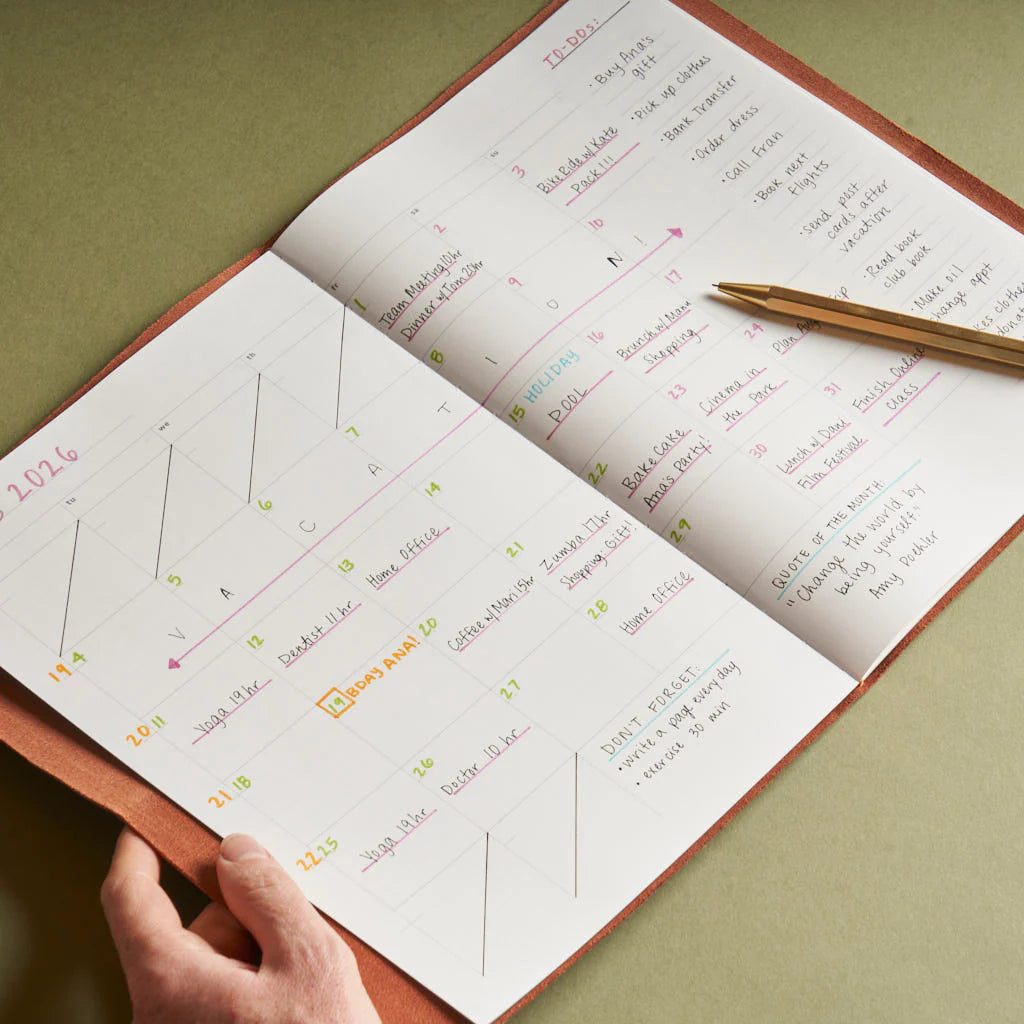 2026
tu
we
th
fr
sa
su
1
Team Meeting 10hr
Dinner w/ Tom 20hr
2
3
Bike Ride w/ Kate
Pack!!!
19 4
5
6
7
8
9
10
V A C A T I O N !
20 11
Yoga 19hr
12
Dentist 11 hr
13
Home Office
14
15 HOLIDAY
POOL
16
Brunch w/
Shopping
17
21 18
19 BDAY ANA!
20
Coffee w/ Mari 15hr
21
Zumba 17hr
Shopping: Gift!
22
Bake Cake
Ana's Party!
23
Cinema in
the Park
24
Plan
22 25
Yoga 19hr
26
Doctor 10 hr
27
28
Home Office
29
30
Lunch w/ Dani
Film Festival
31
Finish Online
class
TO-DOs:
• Buy Ana's
gift
• Pick up clothes
• Bank Transfer
• Order dress
• Call Fran
• Book next
flights
• send post
cards after
vacation
• Read book
club book
• Make oil
change appt
DON'T FORGET:
• Write a page every day
• exercise 30 min
QUOTE OF THE MONTH:
"Change the world by
being yourself."
Amy Poehler